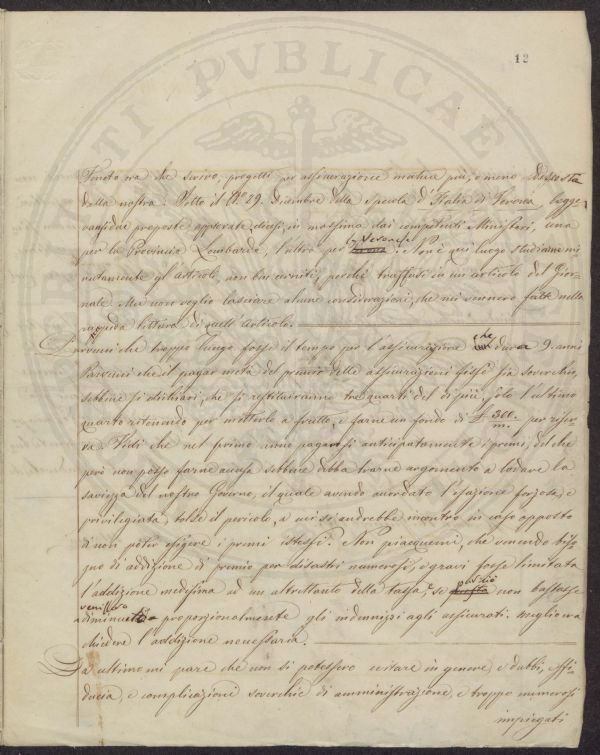 12
ERIATI PVBLICAE
ora che scrivo, progetti per assicurazione mortua più, o meno discosta
dalla nostra. Sotto il 29. Dicembre della specola d'Italia di Verona, legge
vansi due proposte approvate, dicesi, in massima dai competenti Ministeri, una
per la Provincia Lombarda, l'altra per le Veronesi. Non è qui luogo studiarne mi-
nutamente gli articoli, non ben cerniti, perchè trasfusi in un articolo del Gior-
nale. Ma non voglio lasciare alcune considerazioni, che mi vennero fatte nella
rapida lettura di quell'articolo.
Parvemi che troppo lungo fosse il tempo per l'assicurazione che dura 9. anni
Parvemi che il pagar metà del premio delle assicurazioni fisse sia soverchio,
sebbene si dichiari, che si restituiranno tre quarti del di più, solo l'ultimo
quarto ritenendo per metterlo a frutto, e farne un fondo di 300 m. per riser-
va. Vidi che nel primo anno pagansi anticipatamente i premi, del che
però non posso farne accusa sebbene debba trarne argomento a lodare la
saviezza del nostro Governo, il quale avendo accordato l'esazione forzosa, e
privilegiata, tolse il pericolo, a cui si andrebbe incontro in caso opposto
di non poter esigere i premi istessi. Non piacquemi, che venendo biso-
gno di addizione di premio per disastri numerosi, e gravi fosse limitata
l'addizione medesima ad un altrettanto della tassa, e se perciò non bastasse
venissero diminuiti proporzionalmente gli indennizzi agli assicurati. Meglio era
chiedere l'addizione necessaria.
Da ultimo mi pare che non si potessero evitare in genere, e dubbi, e sffi-
ducia, e complicazioni soverchie di amministrazione, e troppo numerosi
impiegati